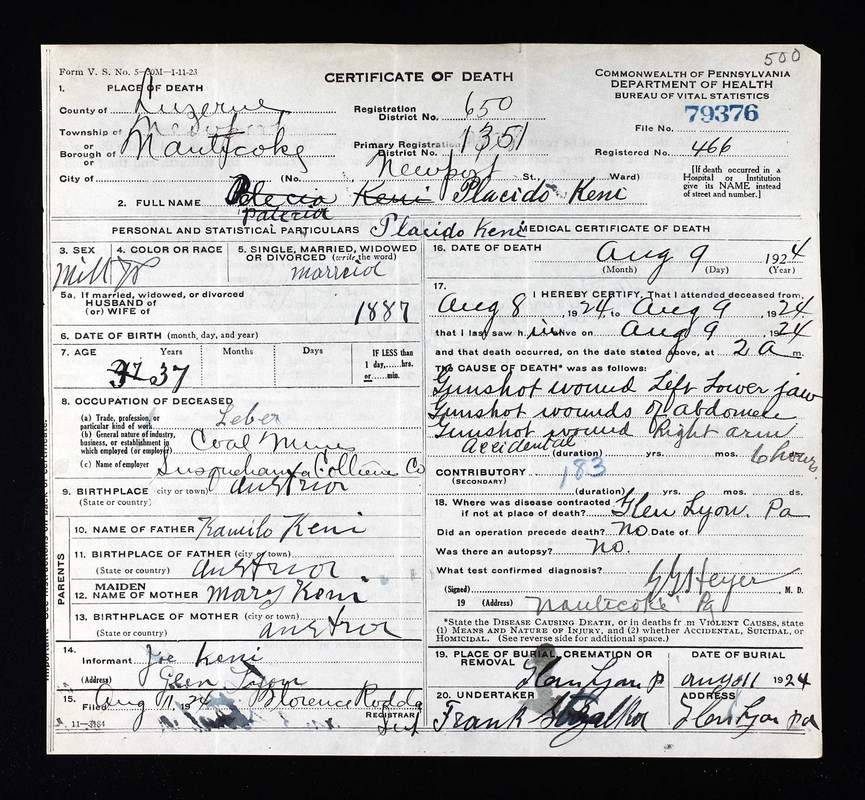 500
Form V. S. No. 5—50M—1-11-23
CERTIFICATE OF DEATH
COMMONWEALTH OF PENNSYLVANIA
DEPARTMENT OF HEALTH
BUREAU OF VITAL STATISTICS
1. PLACE OF DEATH
County of Luzerne
Registration District No. 650
79376
File No.
Township of
or
Borough of Nanticoke
or
Primary Registration District No. 1351
Registered No. 466
City of (No. Newport St., Ward)
[If death occurred in a Hospital or Institution give its NAME instead of street and number.]
2. FULL NAME Keni Placido Keni
PERSONAL AND STATISTICAL PARTICULARS Placido Keni
3. SEX
4. COLOR OR RACE
5. SINGLE, MARRIED, WIDOWED OR DIVORCED (write the word)
married
5a. If married, widowed, or divorced
HUSBAND of
(or) WIFE of
1887
6. DATE OF BIRTH (month, day, and year)
7. AGE Years Months Days IF LESS than 1 day,......hrs. or......min.
37 37
8. OCCUPATION OF DECEASED
(a) Trade, profession, or particular kind of work Leber
(b) General nature of industry, business, or establishment in which employed (or employer) Coal Mines
(c) Name of employer Susquehanna Collieries Co
9. BIRTHPLACE (city or town) Austria
(State or country)
PARENTS
10. NAME OF FATHER Kamilo Keni
11. BIRTHPLACE OF FATHER (city or town)
(State or country) Austria
12. MAIDEN NAME OF MOTHER Mary Keni
13. BIRTHPLACE OF MOTHER (city or town)
(State or country) Austria
14.
Informant Joe Keni
(Address) Glen Lyon
15.
Filed Aug 11, 1924 Florence Rodda
REGISTRAR
11—3184
MEDICAL CERTIFICATE OF DEATH
16. DATE OF DEATH Aug 9 1924
(Month) (Day) (Year)
17.
I HEREBY CERTIFY, That I attended deceased from
Aug 8, 1924 to Aug 9, 1924
that I last saw h im alive on Aug 9, 1924
and that death occurred, on the date stated above, at 2 A m.
The CAUSE OF DEATH* was as follows:
Gunshot wound Left Lower jaw
Gunshot wounds of abdomen
Gunshot wound Right arm
Accidental
(duration) yrs. mos. 6 hours
CONTRIBUTORY 183
(SECONDARY)
(duration) yrs. mos. ds.
18. Where was disease contracted
if not at place of death? Glen Lyon. Pa
Did an operation precede death? no. Date of
Was there an autopsy? no.
What test confirmed diagnosis?
(Signed) G G Heyer M. D.
19 (Address) Nanticoke Pa
*State the DISEASE CAUSING DEATH, or in deaths from VIOLENT CAUSES, state
(1) MEANS AND NATURE OF INJURY, and (2) whether ACCIDENTAL, SUICIDAL, or
HOMICIDAL. (See reverse side for additional space.)
19. PLACE OF BURIAL, CREMATION OR REMOVAL
DATE OF BURIAL
Glen Lyon P Aug 11 1924
20. UNDERTAKER ADDRESS
Frank Glen Lyon Pa